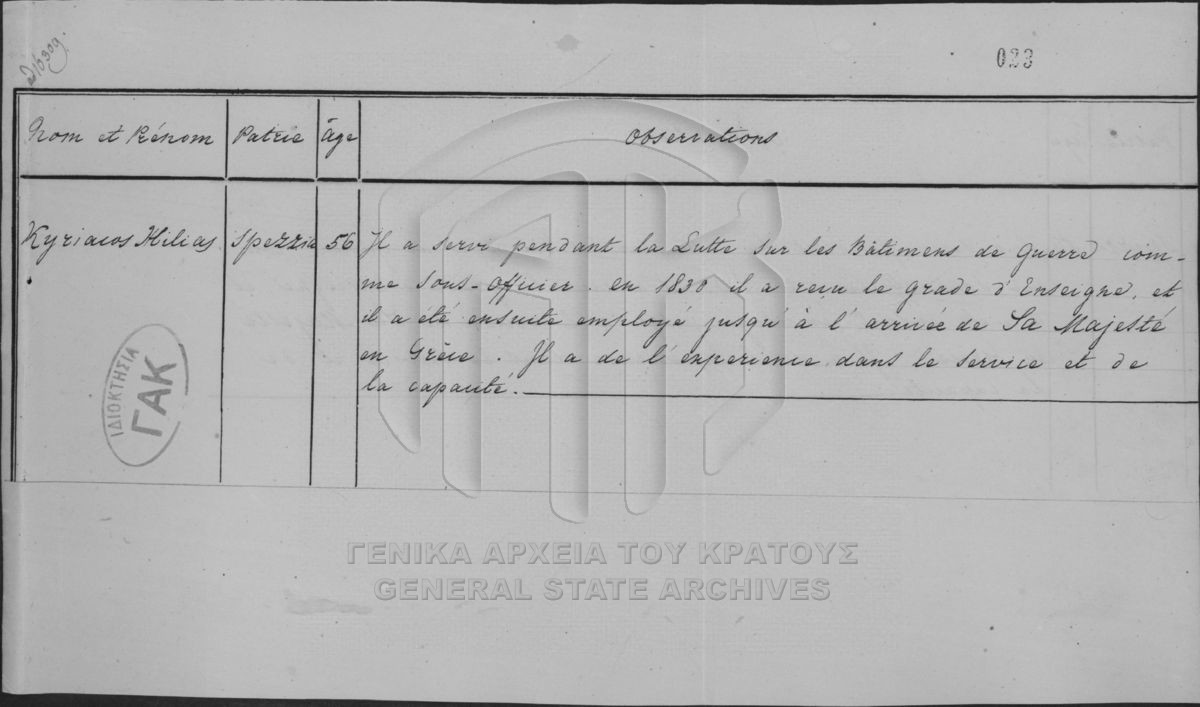 023
Nom et Prénom Patrie âge Observations
Kyriacos Hilias Spezzia 56 Il a servi pendant la Lutte sur les Bâtimens de Guerre com-
me Sous-Officier. en 1830 il a reçu le grade d'Enseigne, et
il a été ensuite employé jusqu'à l'arrivée de Sa Majesté
en Grèce. Il a de l'experience dans le service et de
la capacité.
ΙΔΙΟΚΤΗΣΙΑ
ΓΑΚ
ΓΕΝΙΚΑ ΑΡΧΕΙΑ ΤΟΥ ΚΡΑΤΟΥΣ
GENERAL STATE ARCHIVES